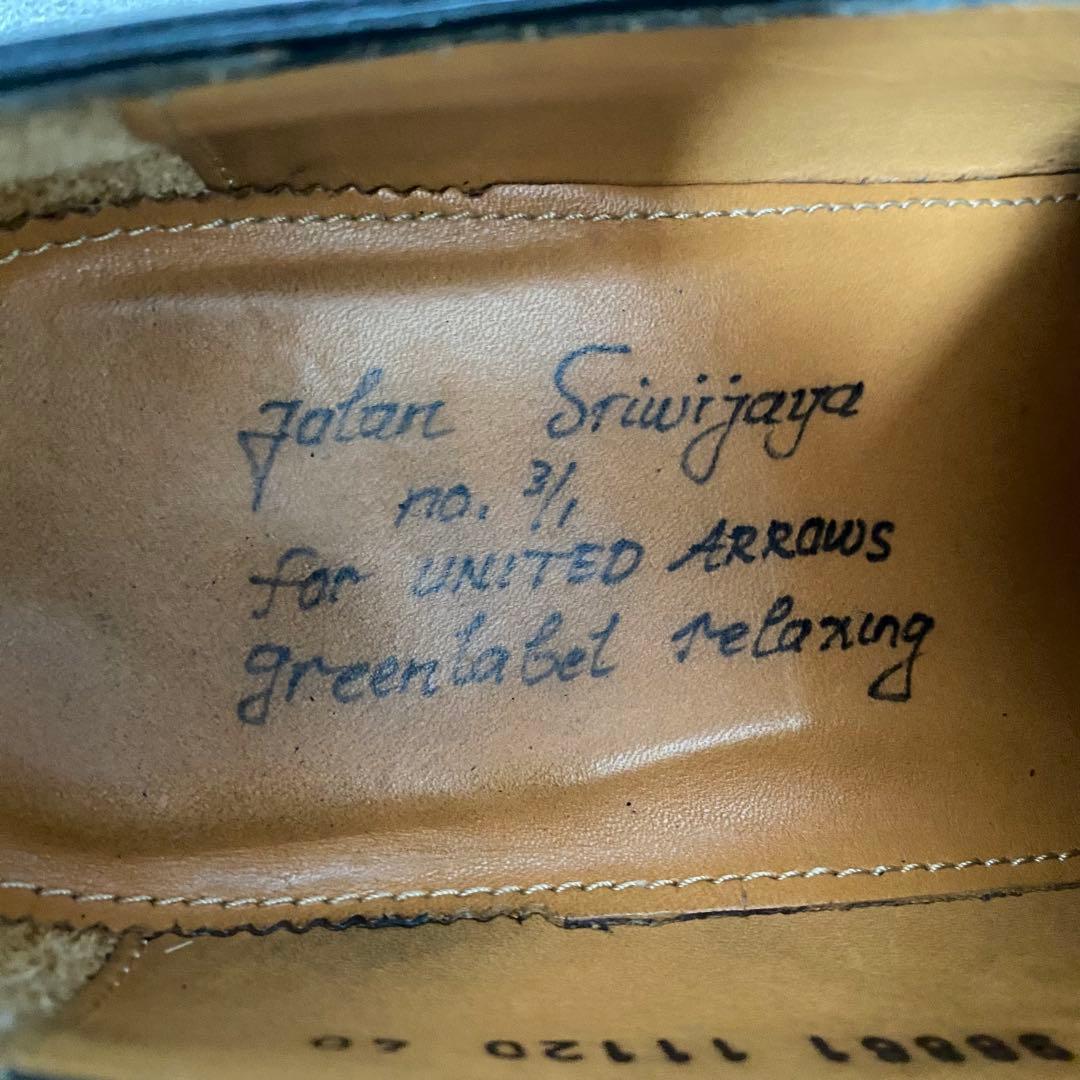 Jalan Sriwijaya
no. 3/1
for UNITED ARROWS
green label relaxing
11120